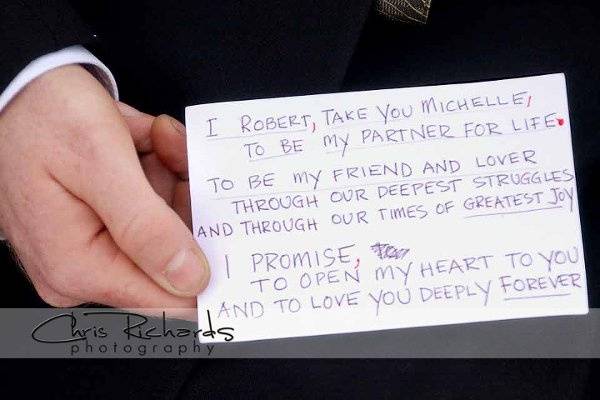 I ROBERT, TAKE YOU MICHELLE,
TO BE MY PARTNER FOR LIFE.
TO BE MY FRIEND AND LOVER
THROUGH OUR DEEPEST STRUGGLES
AND THROUGH OUR TIMES OF GREATEST JOY
I PROMISE,
TO OPEN MY HEART TO YOU
AND TO LOVE YOU DEEPLY FOREVER
Chris Richards
photography